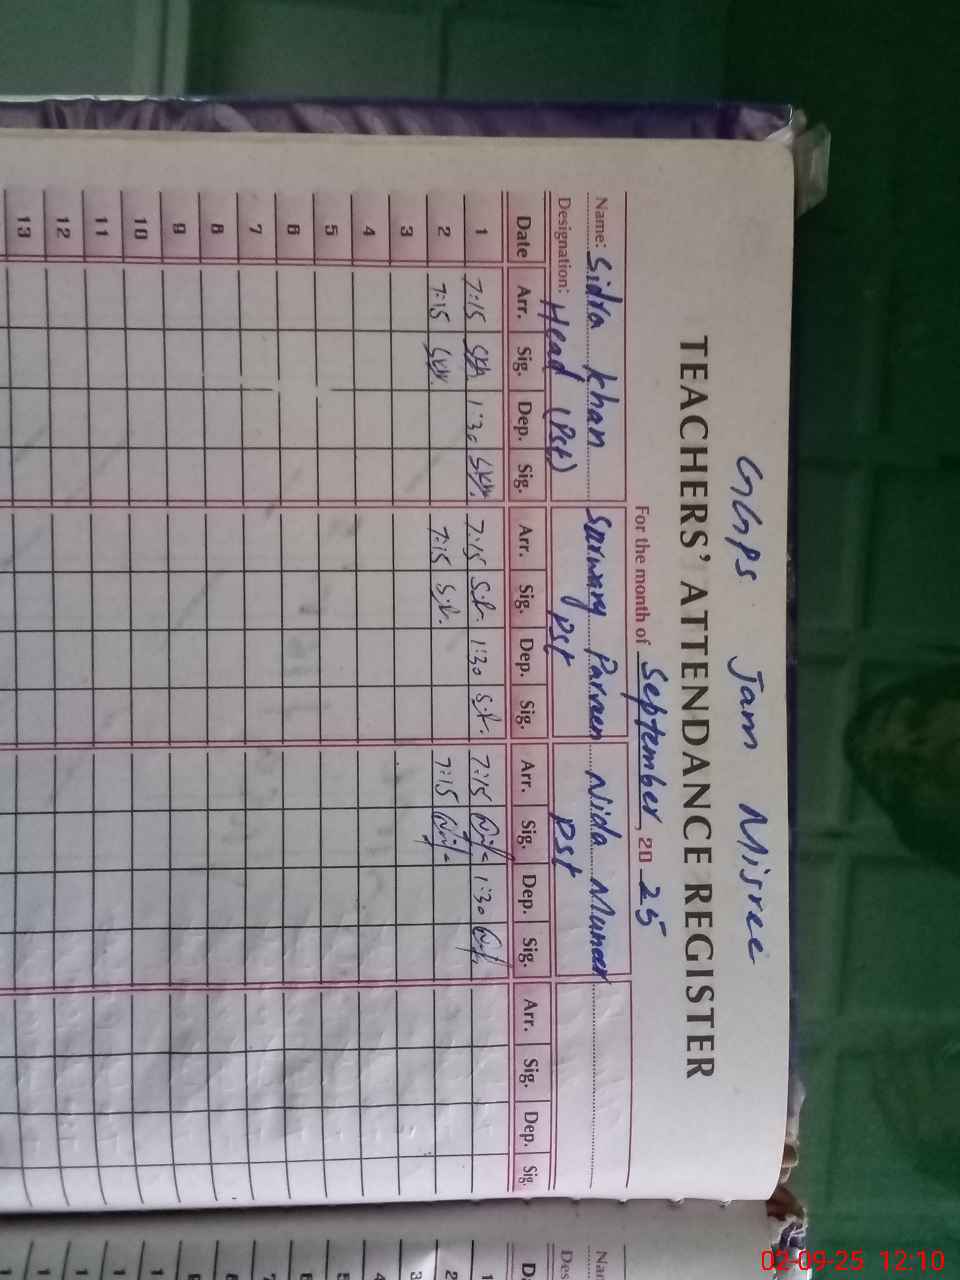 GGPS Jam Misree
TEACHERS' ATTENDANCE REGISTER
For the month of September, 2025
Name: Sidra Khan Surwary Parveen Nida Muneer
Designation: Head (Pst) Pst Pst
Date Arr. Sig. Dep. Sig. Arr. Sig. Dep. Sig. Arr. Sig. Dep. Sig. Arr. Sig. Dep. Sig.
1 7:15 1:30 7:15 S.P. 1:30 S.P. 7:15 1:30
2 7:15 7:15 S.P. 7:15
3
4
5
6
7
8
9
10
11
12
13
02-09-25 12:10